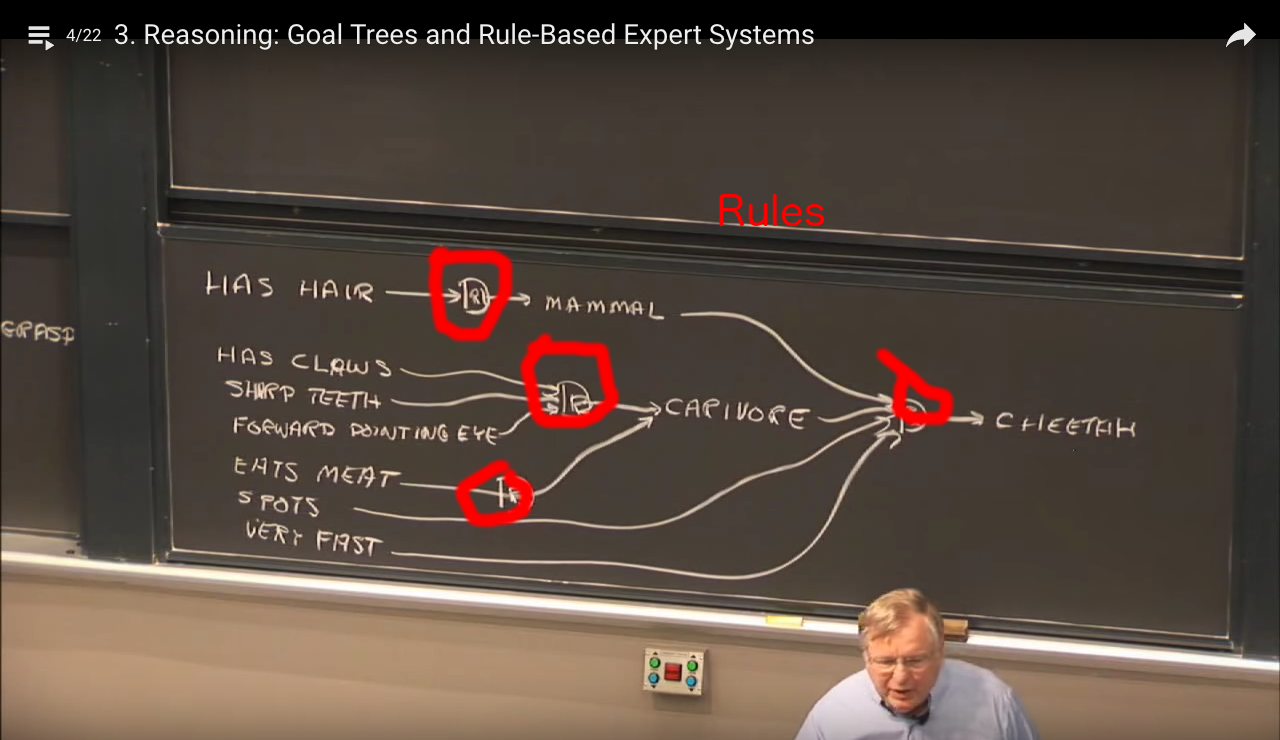 4/22 3. Reasoning: Goal Trees and Rule-Based Expert Systems
Rules
HAS HAIR
R1
MAMMAL
HAS CLAWS
SHARP TEETH
FORWARD POINTING EYE
CARIVORE
CHEETAH
EATS MEAT
SPOTS
VERY FAST